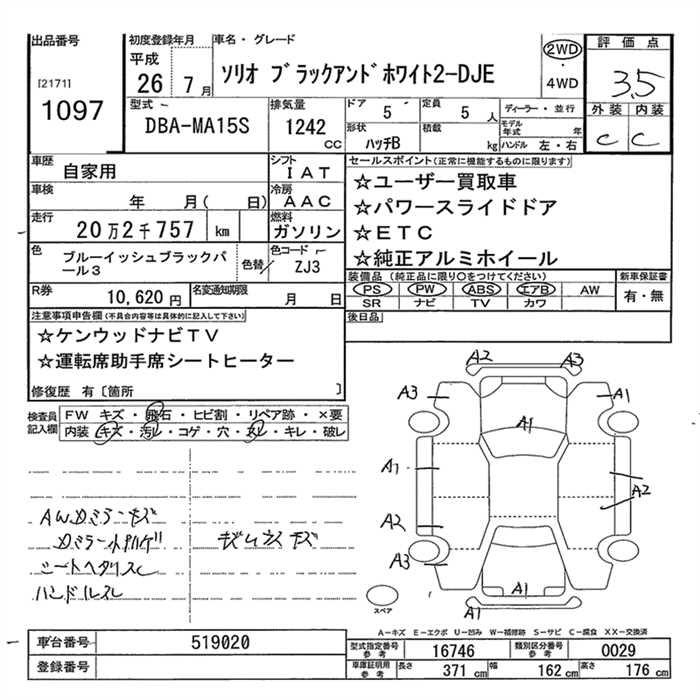 出品番号
[2171]
1097
初度登録年月
平成
26 7月
車名・グレード
ソリオ ブラックアンドホワイト2-DJE
2WD
・
4WD
評価点
3.5
外装 内装
C C
型式
DBA-MA15S
排気量
1242
cc
ドア
5
定員
5人
ディーラー・並行
形状
ハッチB
積載
kg
モデル年式 年
ハンドル 左・右
車歴
自家用
シフト
IAT
車検
年 月(日)
冷房
AAC
走行
20万2千757 km
燃料
ガソリン
色
ブルーイッシュブラックパール3
色替
色コード
ZJ3
R券
10,620円
名変通知期限
月 日
セールスポイント(正常に機能するものに限ります)
☆ユーザー買取車
☆パワースライドドア
☆ETC
☆純正アルミホイール
装備品 (純正品に限り○をつけてください)
PS PW ABS エアB AW
SR ナビ TV カワ
新車保証書
有・無
後日品
注意事項申告欄(不具合内容等は具体的に記入して下さい)
☆ケンウッドナビTV
☆運転席助手席シートヒーター
修復歴 有〔箇所 〕
検査員記入欄
FW キズ・飛石・ヒビ割・リペア跡・×要
内装 キズ・汚レ・コゲ・穴・スレ・キレ・破レ
AWカミラーキズ
シートヘタリスレ
ハンドルスレ
A2
A3
A3
A1
A1
A1
A2
A2
A3
A1
A1
スペア
A-キズ E-エクボ U-凹み W-補修跡 S-サビ C-腐食 XX-交換済
車台番号
519020
登録番号
型式指定番号
参考
16746
類別区分番号
参考
0029
車庫証明用
参考
長さ
371 cm
幅
162 cm
高さ
176 cm